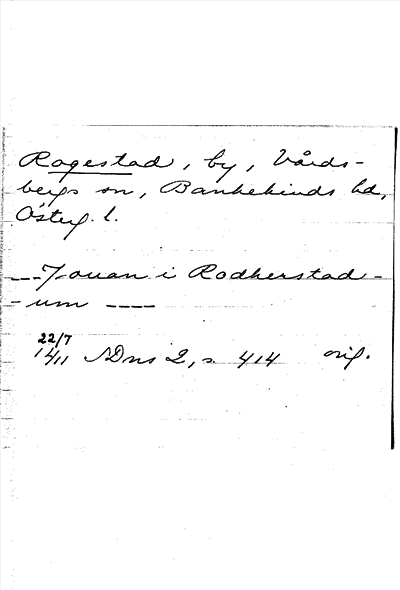 Rogestad, by, Vårds-
bergs sn, Bankekinds hd,
Österg. l.
--- Jouan i Rodherstad-
- um ----
22/7
1411 SDns 2, s. 414 orig.